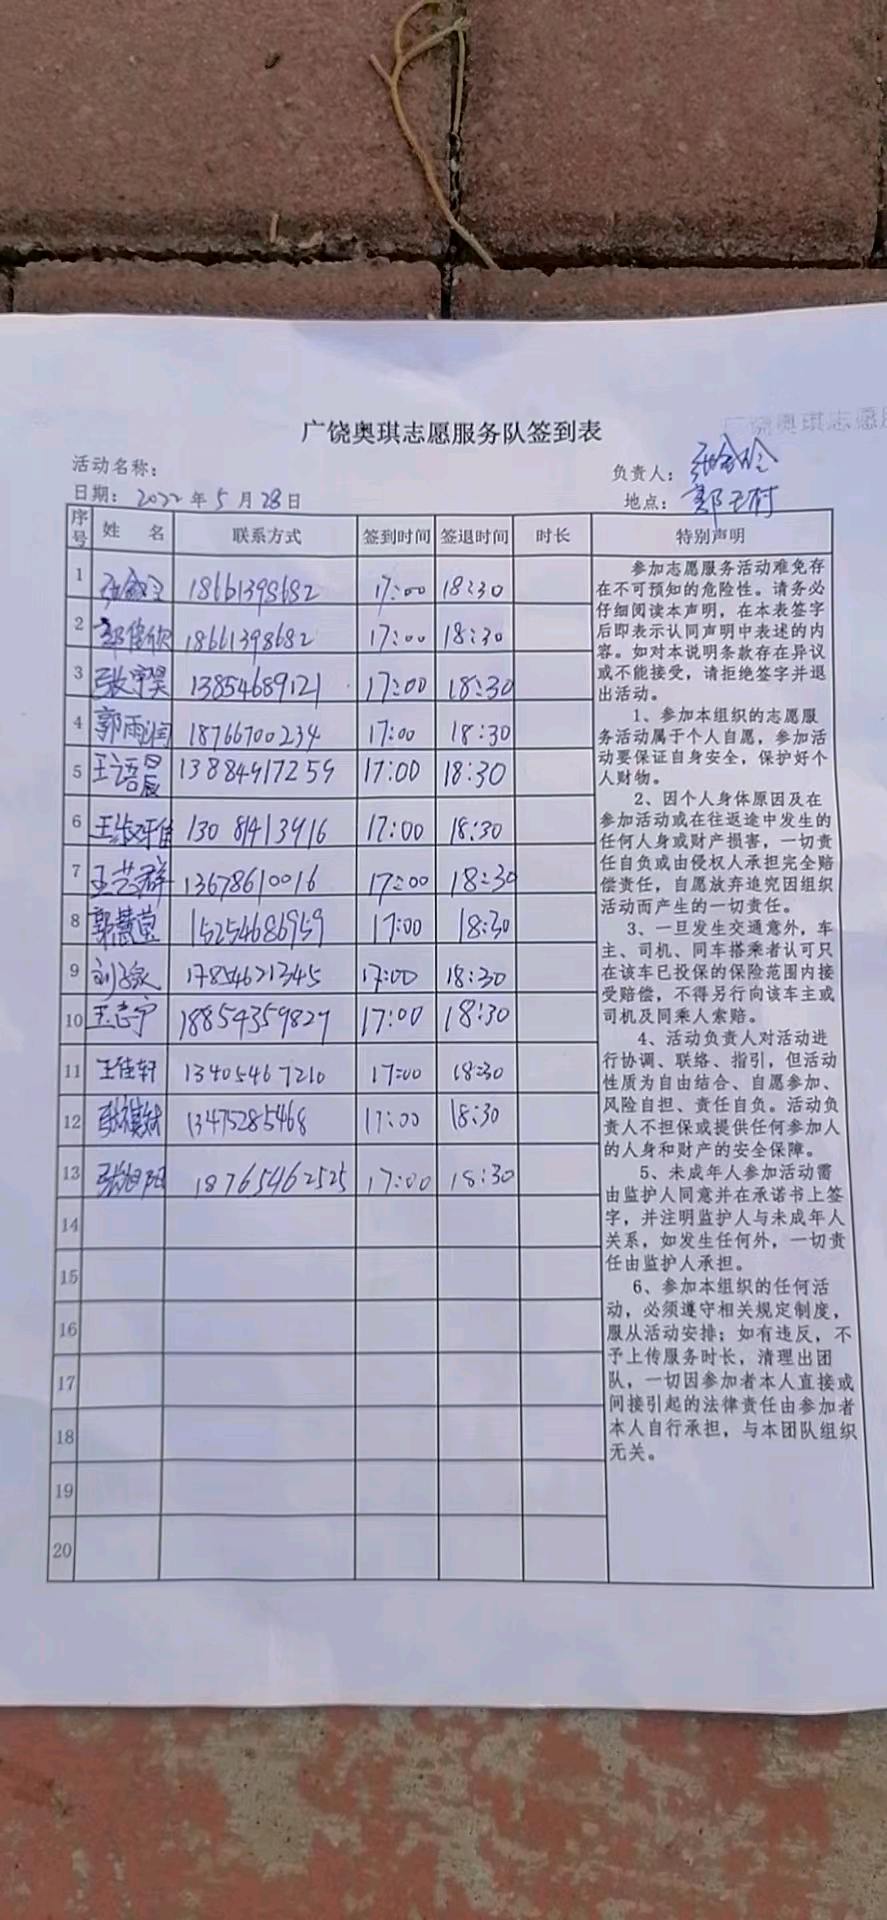 广饶奥琪志愿服务队签到表
广饶奥琪志愿服
活动名称：
负责人：
日期： 2022 年 5 月 28 日
地点： 郭王村
序号 姓 名 联系方式 签到时间 签退时间 时长 特别声明
1 18661398682 17:00 18:30
2 18661398682 17:00 18:30
3 张宇昊 13854689121 17:00 18:30
4 郭雨润 18766700234 17:00 18:30
5 王语晨 13884917259 17:00 18:30
6 130 81413916 17:00 18:30
7 王艺群 13678610016 17:00 18:30
8 郭慧莹 15254686959 17:00 18:30
9 17854621345 17:00 18:30
10 王志宁 18854359827 17:00 18:30
11 王佳轩 13405467210 17:00 18:30
12 13475285468 17:00 18:30
13 张旭阳 18765462525 17:00 18:30
14
15
16
17
18
19
20
参加志愿服务活动难免存
在不可预知的危险性。请务必
仔细阅读本声明，在本表签字
后即表示认同声明中表述的内
容。如对本说明条款存在异议
或不能接受，请拒绝签字并退
出活动。
1、参加本组织的志愿服
务活动属于个人自愿，参加活
动要保证自身安全，保护好个
人财物。
2、因个人身体原因及在
参加活动或在往返途中发生的
任何人身或财产损害，一切责
任自负或由侵权人承担完全赔
偿责任，自愿放弃追究因组织
活动而产生的一切责任。
3、一旦发生交通意外，车
主、司机、同车搭乘者认可只
在该车已投保的保险范围内接
受赔偿，不得另行向该车主或
司机及同乘人索赔。
4、活动负责人对活动进
行协调、联络、指引，但活动
性质为自由结合、自愿参加、
风险自担、责任自负。活动负
责人不担保或提供任何参加人
的人身和财产的安全保障。
5、未成年人参加活动需
由监护人同意并在承诺书上签
字，并注明监护人与未成年人
关系，如发生任何外，一切责
任由监护人承担。
6、参加本组织的任何活
动，必须遵守相关规定制度，
服从活动安排；如有违反，不
予上传服务时长，清理出团
队，一切因参加者本人直接或
间接引起的法律责任由参加者
本人自行承担，与本团队组织
无关。